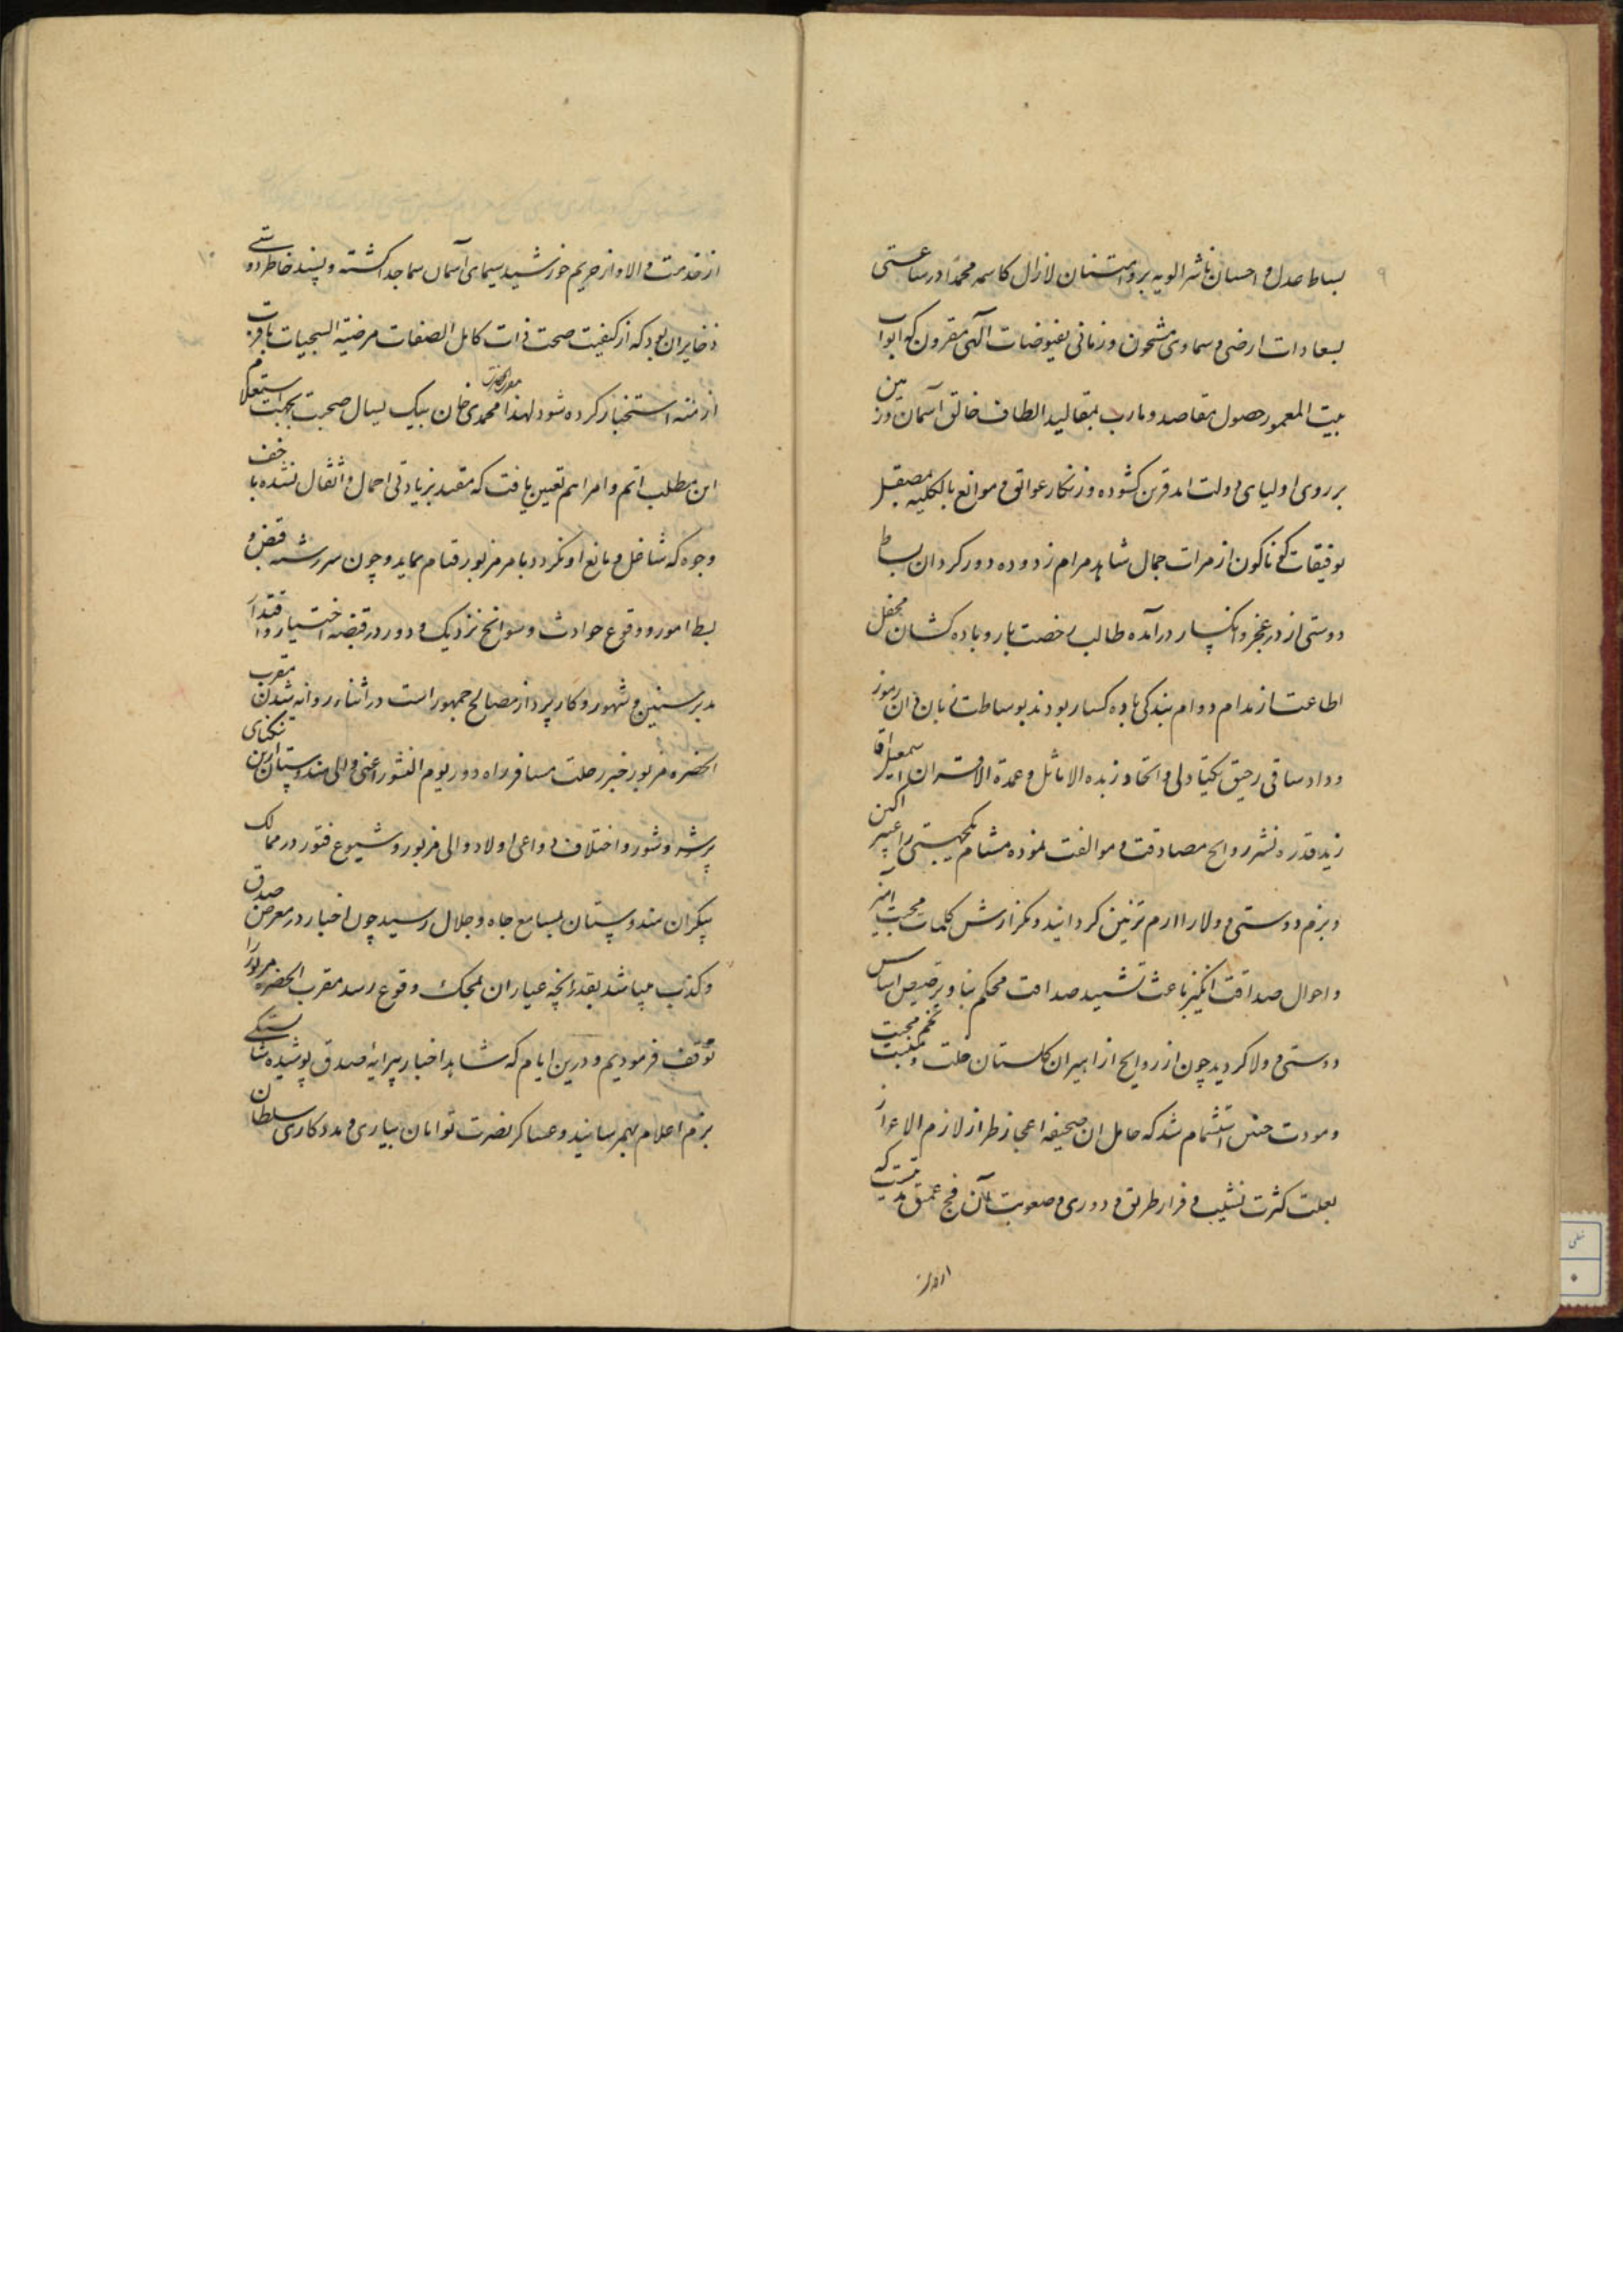 ۹
بساط عدل و احسان ناشر الویه بر و امتنان لازال کاسمه محمدا در ساعتی
بسعادات ارضی و سماوی مشحون و زمانی بفیوضات آلهی مقرون که ابواب
بیت المعمور حصول مقاصد و مارب بمقالید الطاف خالق آسمان و زمین
بر روی اولیای دولت ابد قرین کشوده و زنکار عوایق و موانع بالکلیه بمصقل
توفیقات کوناکون از مرات جمال شاهد مرام زدوده دور کردان بساط
دوستی از در عجز و انکسار درآمده طالب رخصت بار و باده کشان محفل
اطاعت از مدام دوام بندکی باده کسار بودند بوساطت زبان دان رموز
وداد ساقی رحیق یکتادلی و اتحاد زبده الاماثل و عمدة الاقران اسمعیل اقا
زید قدره نشر روایح مصادقت و موالفت نموده مشام یکجهتی را عبیر اکین
و بزم دوستی و ولا را ارم تزئین کردانید و بکزارش کلمات محبت آمیز
و احوال صداقت انکیز باعث تشیید صداقت محکم بنا و ترصیص اساس
دوستی و ولا کردید چون از روایح ازاهیر ان کلستان خلت و تخم محبت
و مودت چنین استشمام شد که حامل ان صحیفه اعجاز طراز لازم الاعزاز
بعلت کثرت نشیب و فراز طریق و دوری و صعوبت آن فج عمیق مدتیست که
از خدمت
۱۰
از خدمت والا و از حریم خورشید سیمای آسمان سما جدا کشته و پسند خاطر دوستی
ذخایر ان بود که از کیفیت صحت ذات کامل الصفات مرضیة السجیات باقرب
ازمنه استخبار کرده شود لهذا مقرب الحضرت محمدی خان بیک یساول صحبت بجهت استعلام
این مطلب اتم و امر اهم تعیین یافت که مقید بزیادتی احمال و اثقال نشده باخف
وجوه که شاغل و مانع او نکردد بامر مزبور قیام نماید و چون سررشته قبض و
بسط امور و وقوع حوادث و سوانح نزدیک و دور در قبضه اختیار و اقتدار
مدبر سنین و شهور و کارپرداز مصالح جمهور است در اثناء روانه شدن مقرب
الحضره مزبور خبر رحلت مسافر راه دور یوم النشور اعنی والی هندوستان ازین تنکنای
پر شر و شور و اختلاف دواعی اولاد والی مزبور و شیوع فتور در ممالک
بیکران هندوستان بمسامع جاه و جلال رسید چون اخبار در معرض صدق
و کذب میباشد تا نقد رایجه عیاران بمحک وقوع رسد مقرب الحضره مزبور را
توقف فرمودیم و درین ایام که شاهد اخبار پیرایه صدق پوشیده شایستکی
بزم اعلام بهم رسانید و عساکر نصرت توامان بیاری و مددکاری سلطان